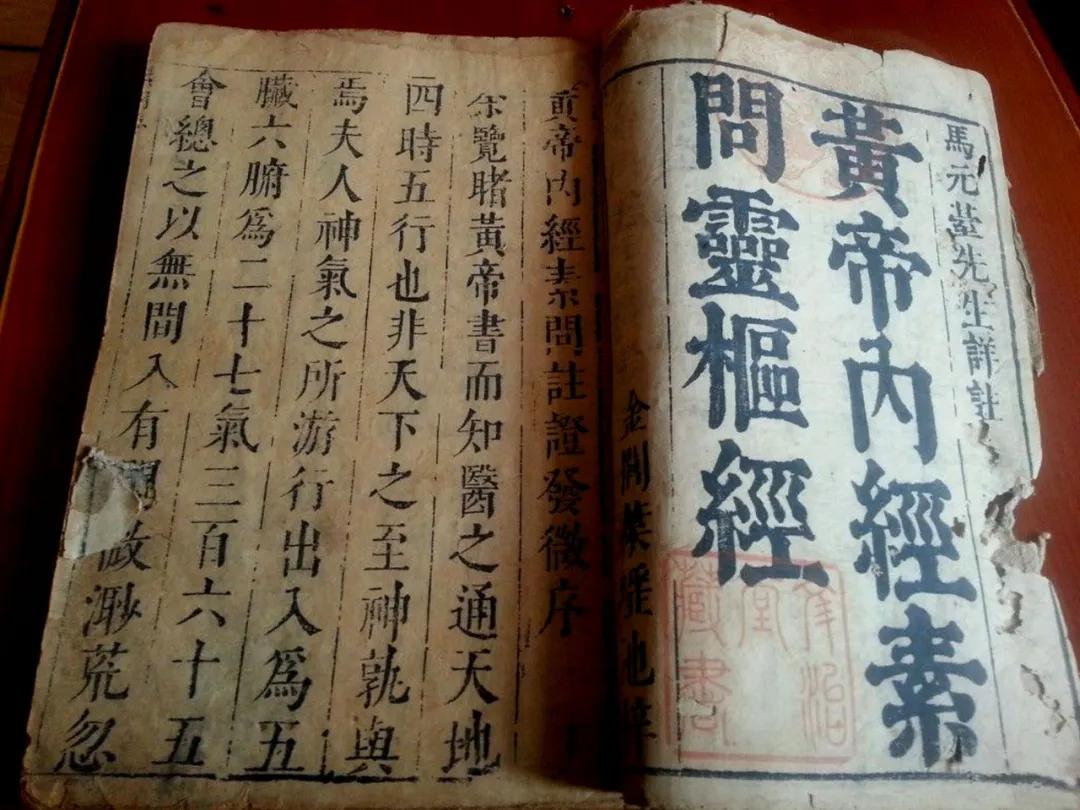 馬元臺先生詳註
黃帝內經素
問靈樞經
金閶葉瑤池梓
藏書
黃帝內經素問註證發微序
余覽睹黃帝書而知醫之通天地
四時五行也非天下之至神孰與
焉夫人神氣之所游行出入爲五
臟六腑爲二十七氣三百六十五
會總之以無間入有間微渺荒忽